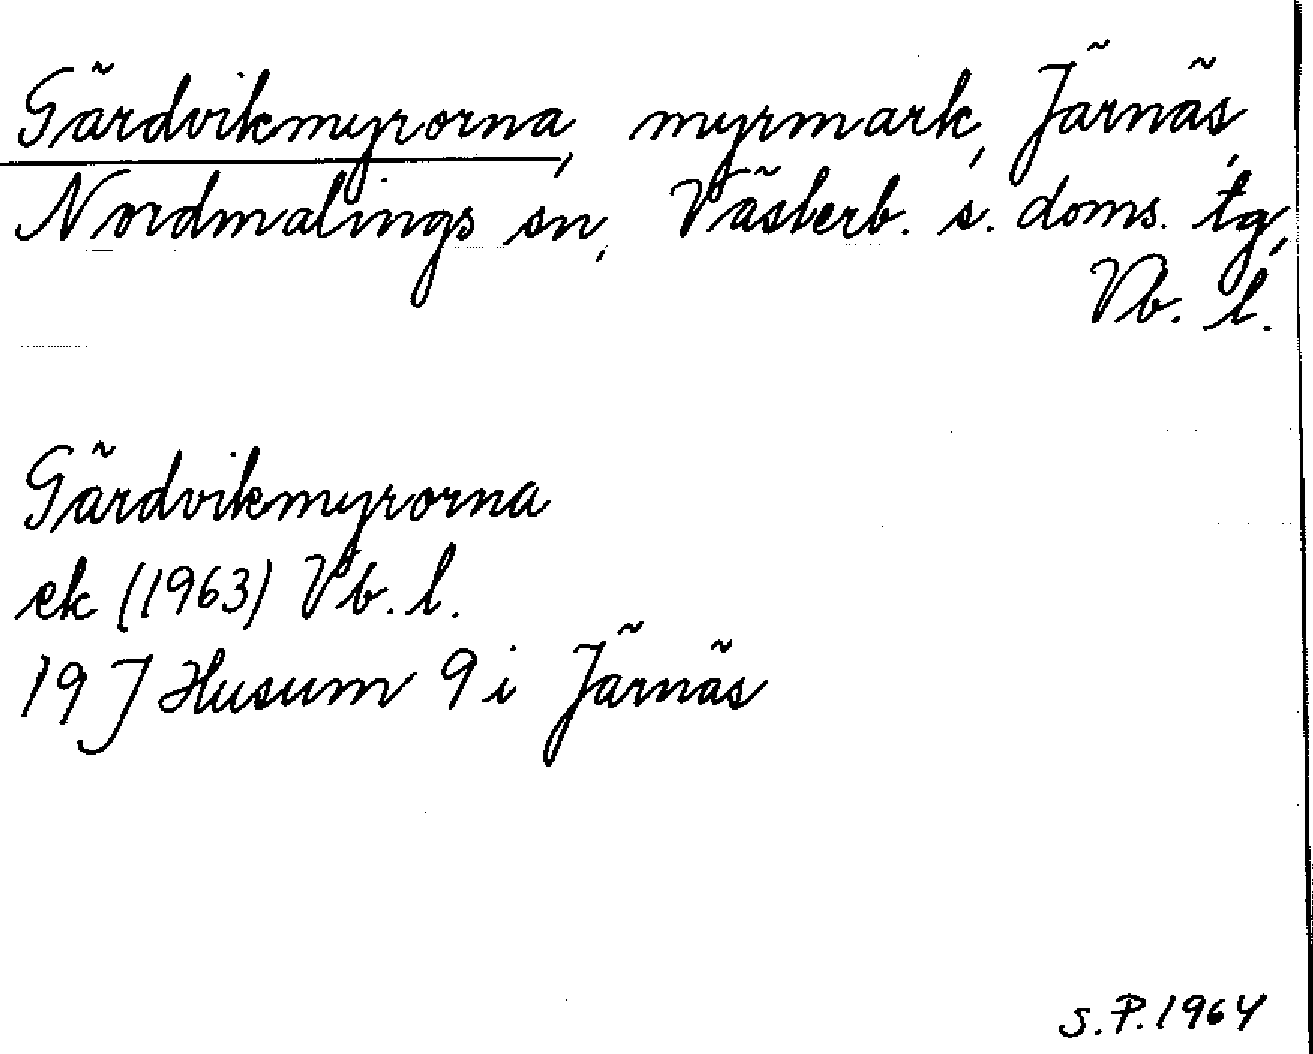 Gärdvikmyrorna, myrmark, Järnäs,
Nordmalings sn, Västerb. s. doms. tg,
Vb. l.
Gärdvikmyrorna
ek (1963) Vb. l.
19 J Husum 9 i Järnäs
S.P. 1964